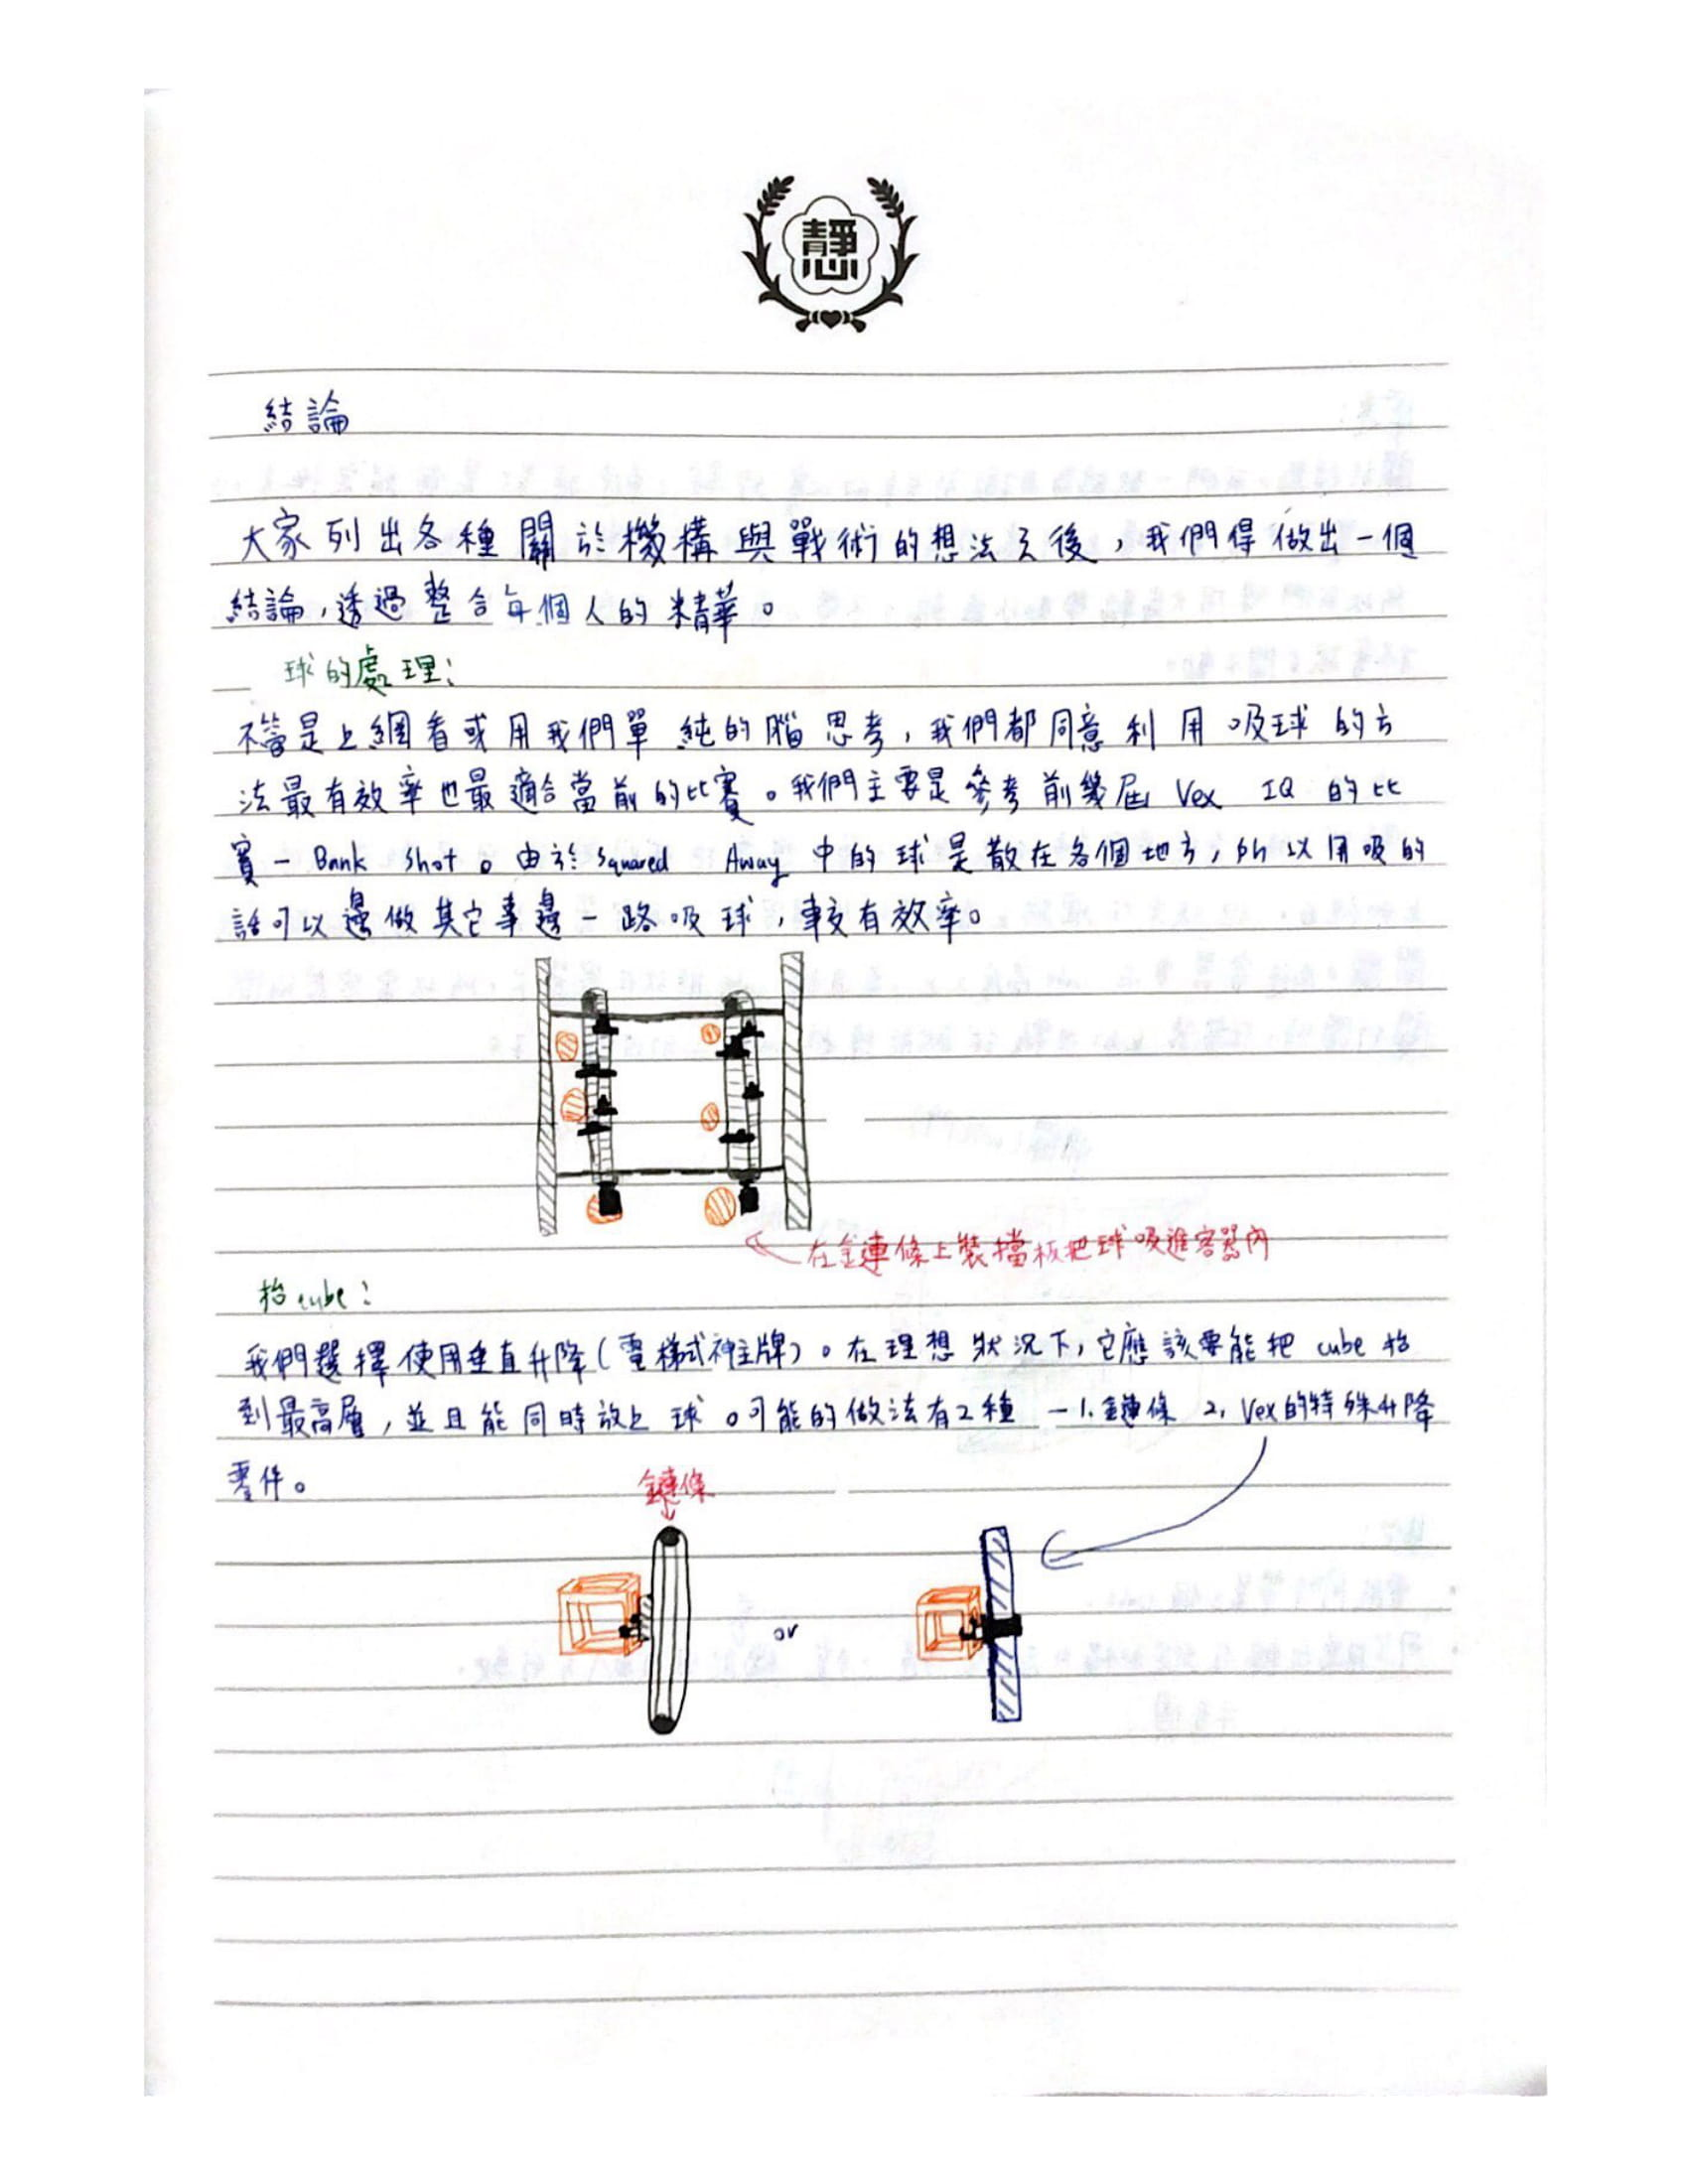 靜思
結論
大家列出各種關於機構與戰術的想法之後，我們得做出一個
結論，透過整合每個人的精華。
球的處理：
不管是上網看或用我們單純的腦思考，我們都同意利用吸球的方
法最有效率也最適合當前的比賽。我們主要是參考前幾屆 Vex IQ 的比
賽 － Bank Shot。由於 Squared Away 中的球是散在各個地方，所以用吸的
話可以邊做其它事邊一路吸球，較有效率。
在鏈條上裝擋板把球吸進容器內
抬cube：
我們選擇使用垂直升降（電梯式神主牌）。在理想狀況下，它應該要能把 cube 抬
到最高層，並且能同時放上球。可能的做法有2種 － 1. 鏈條 2. Vex的特殊升降
零件。
鏈條
or